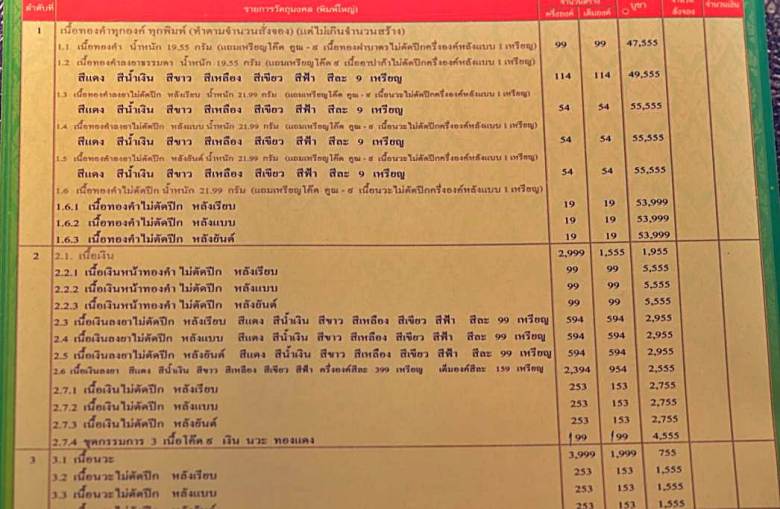 ลำดับที่ รายการวัตถุมงคล (พิมพ์ใหญ่) จำนวนสร้าง ครึ่งองค์ เต็มองค์ บูชา จำนวนสั่งจอง จำนวนเงิน
1 เนื้อทองคำทุกองค์ ทุกพิมพ์ (ทำตามจำนวนสั่งจอง) (แต่ไม่เกินจำนวนสร้าง)
1.1 เนื้อทองคำ น้ำหนัก 19.55 กรัม (แถมเหรียญโค๊ต คูณ - ๙ เนื้อทองฝาบาตรไม่ตัดปีกครึ่งองค์หลังแบบ 1 เหรียญ) 99 99 47,555
1.2 เนื้อทองคำลงยาธรรมดา น้ำหนัก 19.55 กรัม (แถมเหรียญโค๊ต ๙ เนื้ออาปาก้าไม่ตัดปีกครึ่งองค์หลังแบบ 1 เหรียญ)
สีแดง สีน้ำเงิน สีขาว สีเหลือง สีเขียว สีฟ้า สีละ 9 เหรียญ 114 114 49,555
1.3 เนื้อทองคำลงยาไม่ตัดปีก หลังเรียบ น้ำหนัก 21.99 กรัม (แถมเหรียญโค๊ต คูณ - ๙ เนื้อนวะไม่ตัดปีกครึ่งองค์หลังแบบ 1 เหรียญ)
สีแดง สีน้ำเงิน สีขาว สีเหลือง สีเขียว สีฟ้า สีละ 9 เหรียญ 54 54 55,555
1.4 เนื้อทองคำลงยาไม่ตัดปีก หลังแบบ น้ำหนัก 21.99 กรัม (แถมเหรียญโค๊ต คูณ - ๙ เนื้อนวะไม่ตัดปีกครึ่งองค์หลังแบบ 1 เหรียญ)
สีแดง สีน้ำเงิน สีขาว สีเหลือง สีเขียว สีฟ้า สีละ 9 เหรียญ 54 54 55,555
1.5 เนื้อทองคำลงยาไม่ตัดปีก หลังยันต์ น้ำหนัก 21.99 กรัม (แถมเหรียญโค๊ต คูณ - ๙ เนื้อนวะไม่ตัดปีกครึ่งองค์หลังแบบ 1 เหรียญ)
สีแดง สีน้ำเงิน สีขาว สีเหลือง สีเขียว สีฟ้า สีละ 9 เหรียญ 54 54 55,555
1.6 เนื้อทองคำไม่ตัดปีก น้ำหนัก 21.99 กรัม (แถมเหรียญโค๊ต คูณ - ๙ เนื้อนวะไม่ตัดปีกครึ่งองค์หลังแบบ 1 เหรียญ)
1.6.1 เนื้อทองคำไม่ตัดปีก หลังเรียบ 19 19 53,999
1.6.2 เนื้อทองคำไม่ตัดปีก หลังแบบ 19 19 53,999
1.6.3 เนื้อทองคำไม่ตัดปีก หลังยันต์ 19 19 53,999
2 2.1. เนื้อเงิน 2,999 1,555 1,955
2.2.1 เนื้อเงินหน้าทองคำ ไม่ตัดปีก หลังเรียบ 99 99 5,555
2.2.2 เนื้อเงินหน้าทองคำ ไม่ตัดปีก หลังแบบ 99 99 5,555
2.2.3 เนื้อเงินหน้าทองคำ ไม่ตัดปีก หลังยันต์ 99 99 5,555
2.3 เนื้อเงินลงยาไม่ตัดปีก หลังเรียบ สีแดง สีน้ำเงิน สีขาว สีเหลือง สีเขียว สีฟ้า สีละ 99 เหรียญ 594 594 2,955
2.4 เนื้อเงินลงยาไม่ตัดปีก หลังแบบ สีแดง สีน้ำเงิน สีขาว สีเหลือง สีเขียว สีฟ้า สีละ 99 เหรียญ 594 594 2,955
2.5 เนื้อเงินลงยาไม่ตัดปีก หลังยันต์ สีแดง สีน้ำเงิน สีขาว สีเหลือง สีเขียว สีฟ้า สีละ 99 เหรียญ 594 594 2,955
2.6 เนื้อเงินลงยา สีแดง สีน้ำเงิน สีขาว สีเหลือง สีเขียว สีฟ้า ครึ่งองค์สีละ 399 เหรียญ เต็มองค์สีละ 159 เหรียญ 2,394 954 2,555
2.7.1 เนื้อเงินไม่ตัดปีก หลังเรียบ 253 153 2,755
2.7.2 เนื้อเงินไม่ตัดปีก หลังแบบ 253 153 2,755
2.7.3 เนื้อเงินไม่ตัดปีก หลังยันต์ 253 153 2,755
2.7.4 ชุดกรรมการ 3 เนื้อโค๊ต ๙ เงิน นวะ ทองแดง 199 199 4,555
3 3.1 เนื้อนวะ 3,999 1,999 755
3.2 เนื้อนวะไม่ตัดปีก หลังเรียบ 253 153 1,555
3.3 เนื้อนวะไม่ตัดปีก หลังแบบ 253 153 1,555
253 153 1,555